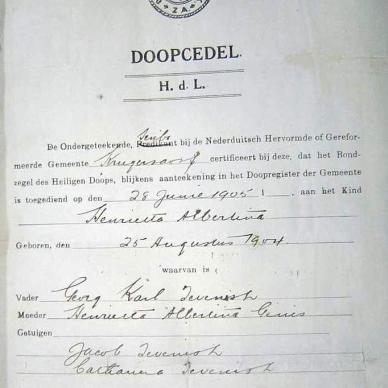 ZA
DOOPCEDEL.
H. d. L.
Scriba
De Ondergeteekende, Predikant bij de Nederduitsch Hervormde of Gerefor-
meerde Gemeente Krugersdorp certificeert bij deze, dat het Bond-
zegel des Heiligen Doops, blijkens aanteekening in het Doopregister der Gemeente
is toegediend op den 28 Junie 1905 aan het Kind
Henrietta Albertina
Geboren, den 25 Augustus 1904.
waarvan is
Vader Georg Karl Devenish
Moeder Henrietta Albertina
Getuigen
Jacob Devenish
Devenish